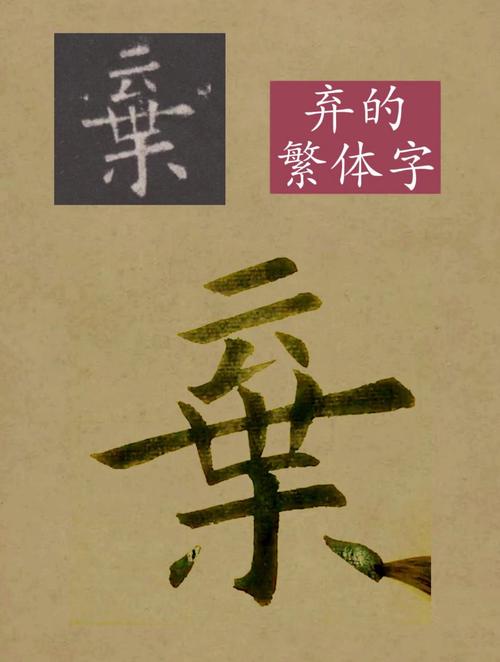 棄
弃的
繁体字
棄